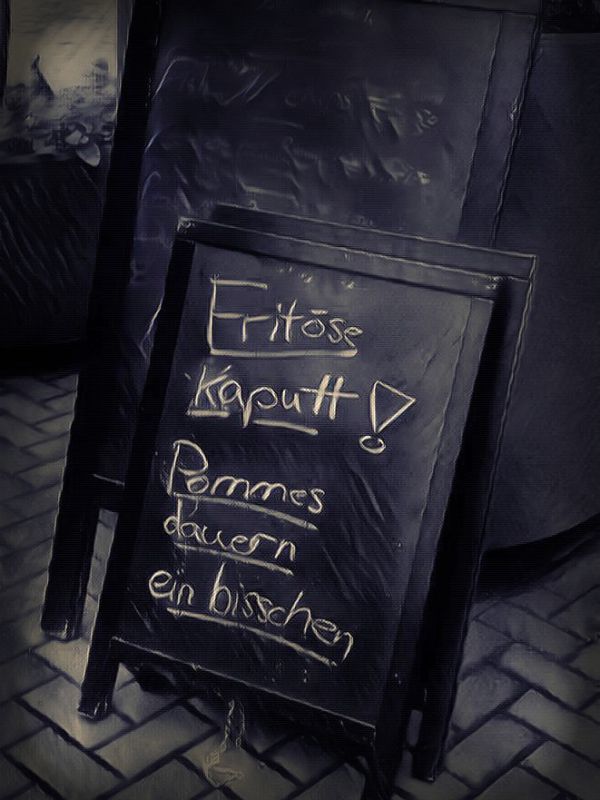 Fritöse
Kaputt!
Pommes
dauern
ein bisschen